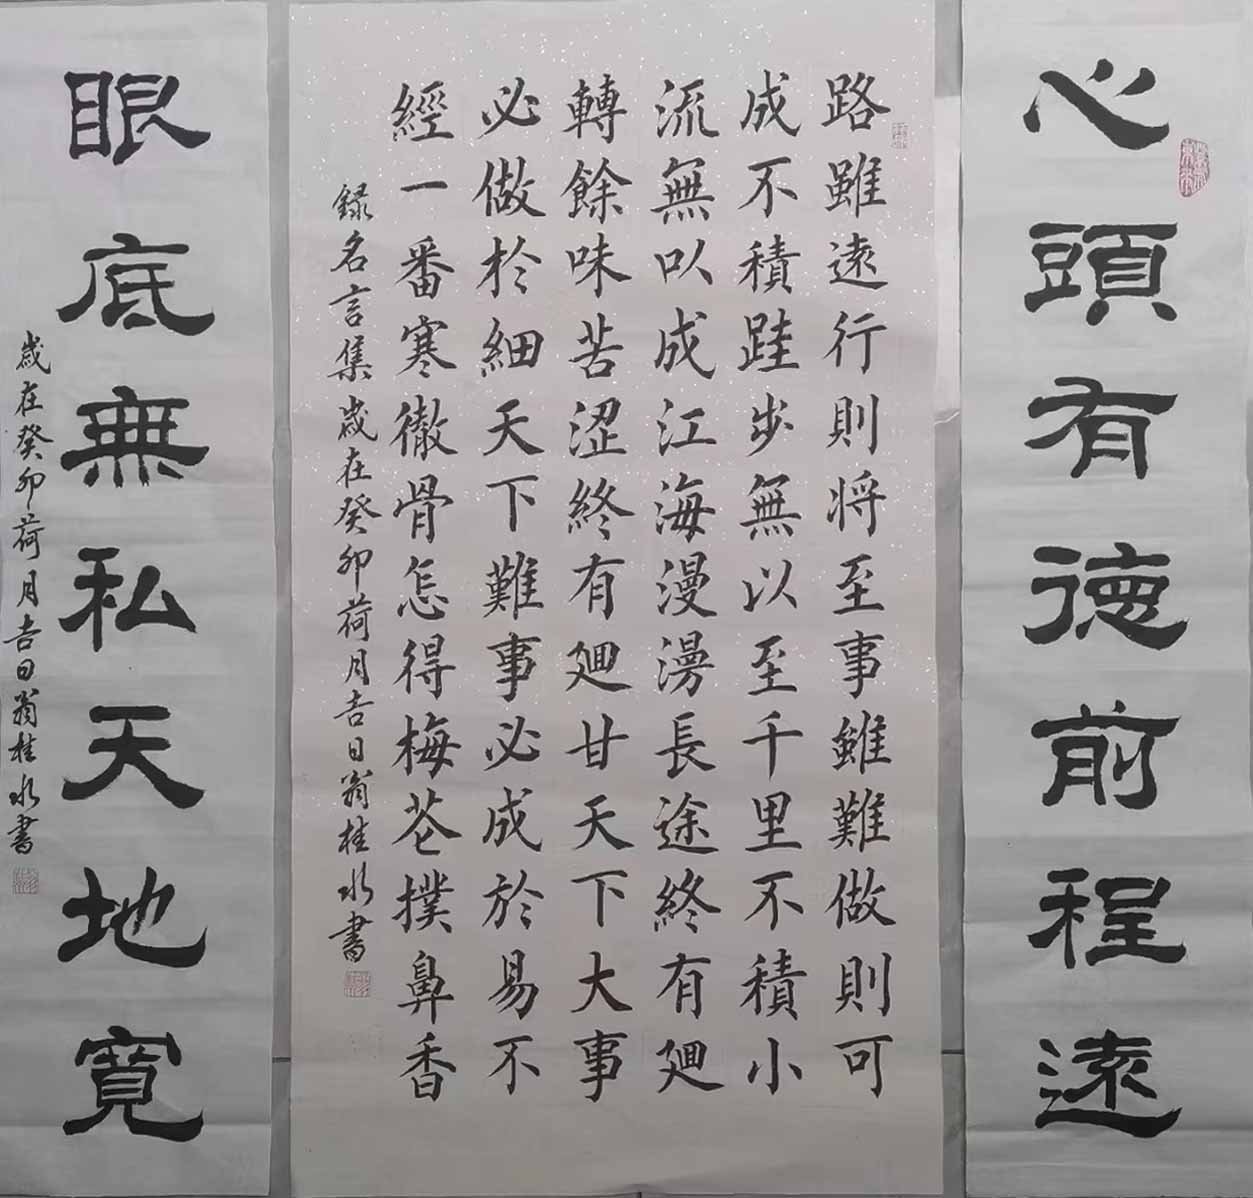 心頭有德前程遠
路雖遠行則将至事雖難做則可
成不積跬步無以至千里不積小
流無以成江海漫漫長途終有廻
轉餘味苦涩終有廻甘天下大事
必做於細天下難事必成於易不
經一番寒徹骨怎得梅花撲鼻香
録名言集歲在癸卯荷月吉日翁桂水書
眼底無私天地寬
歲在癸卯荷月吉日翁桂水書